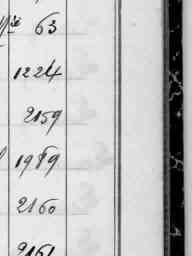 63
1224
2159
1989
2160
2161